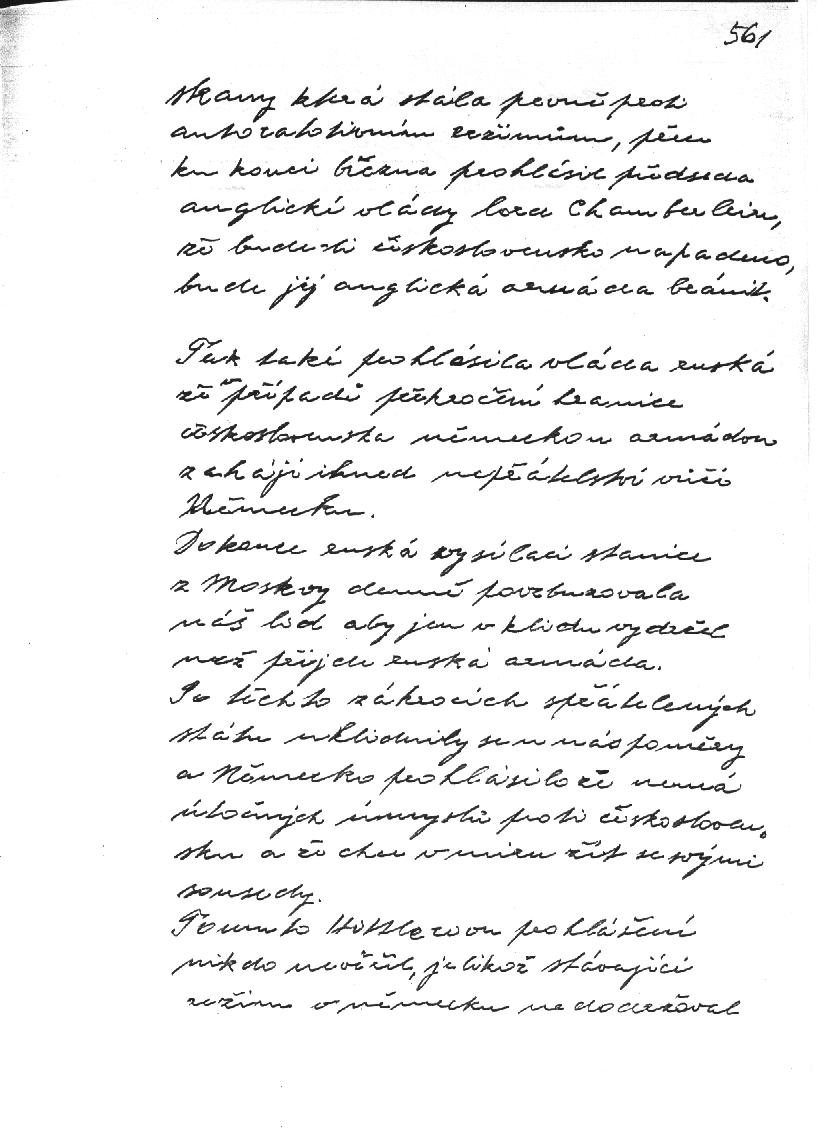 561
strany která stála pevně proti
autoratativním režimům, přec
ku konci března prohlásil předseda
anglické vlády lord Chamberlein,
že bude-li československo napadeno,
bude jej anglická armáda bránit.
Tak také prohlásila vláda ruská
že v případě překročení hranice
československa německou armádou
zahájí ihned nepřátelství vůči
Německu.
Dokonce ruská vysílací stanice
z Moskvy denně povzbuzovala
náš lid aby jen v klidu vydržel
než přijde ruská armáda.
Po těchto zákrocích spřátelených
státu uklidnily se u nás poměry
a Německo prohlásilo že nemá
útočných úmyslů proti českosloven-
sku a že chce v míru žít se svými
sousedy.
Tomuto Hittlerovu prohlášení
nikdo nevěřil, jelikož stávající
režim v německu nedodržoval